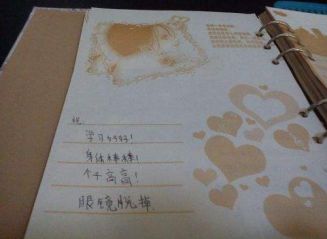 祝:
学习好好!
身体棒棒!
个子高高!
眼镜脱掉.